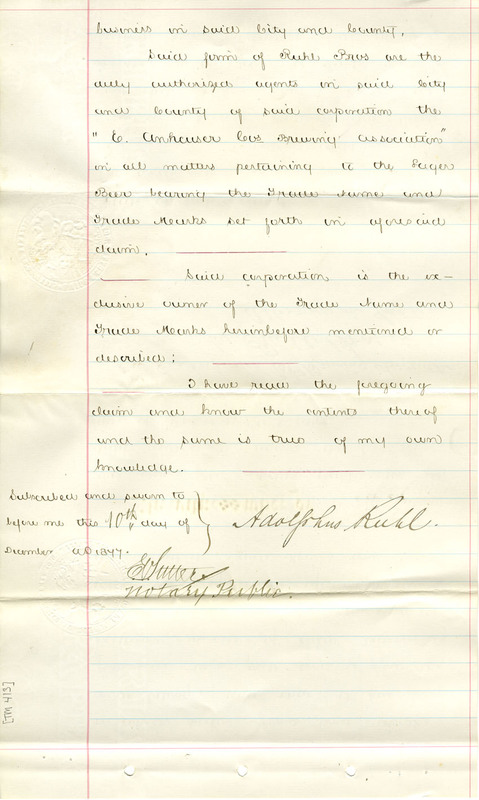 business in said City and County.
Said form of Ruhl Bros are the
duly authorized agents in said City
and County of said corporation the
"E. Anheuser Cos Brewing association"
in all matters pertaining to the Lager
Beer bearing the Trade name and
Trade Marks set forth in aforesaid
claim.
Said corporation is the ex-
clusive owner of the Trade Name and
Trade Marks hereinbefore mentioned or
described;
I have read the foregoing
claim and know the contents thereof
and the same is true of my own
knowledge.
Subscribed and sworn to
before me this 10th day of
December AD 1877.
Adolphus Ruhl.
Notary Public.
[TM 413]